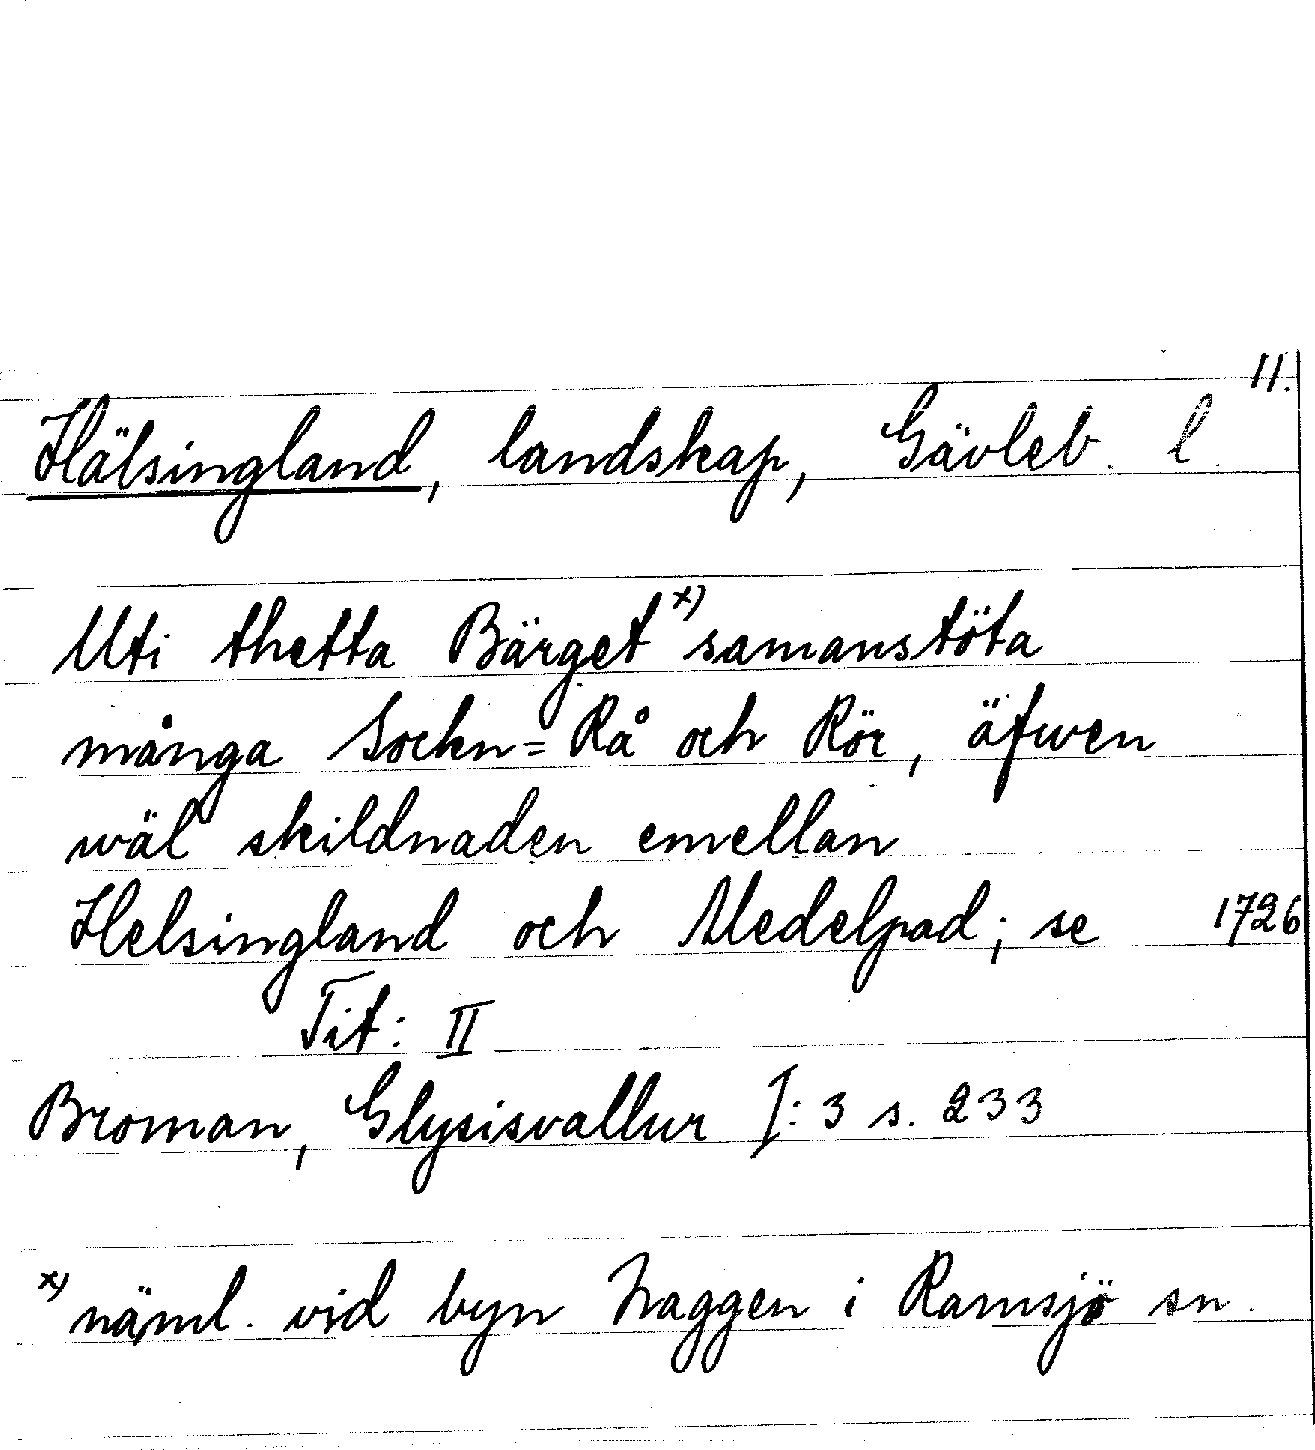 11.
Hälsingland, landskap, Gävleb. l
Uti thetta Bärget x) samanstöta
många Sockn= Rå och Rör, äfwen
wäl skildnaden emellan
Helsingland och Medelpad; se 1726
Tit: II
Broman, Glysisvallur I: 3 s. 233
x) näml. vid byn Naggen i Ramsjö sn.